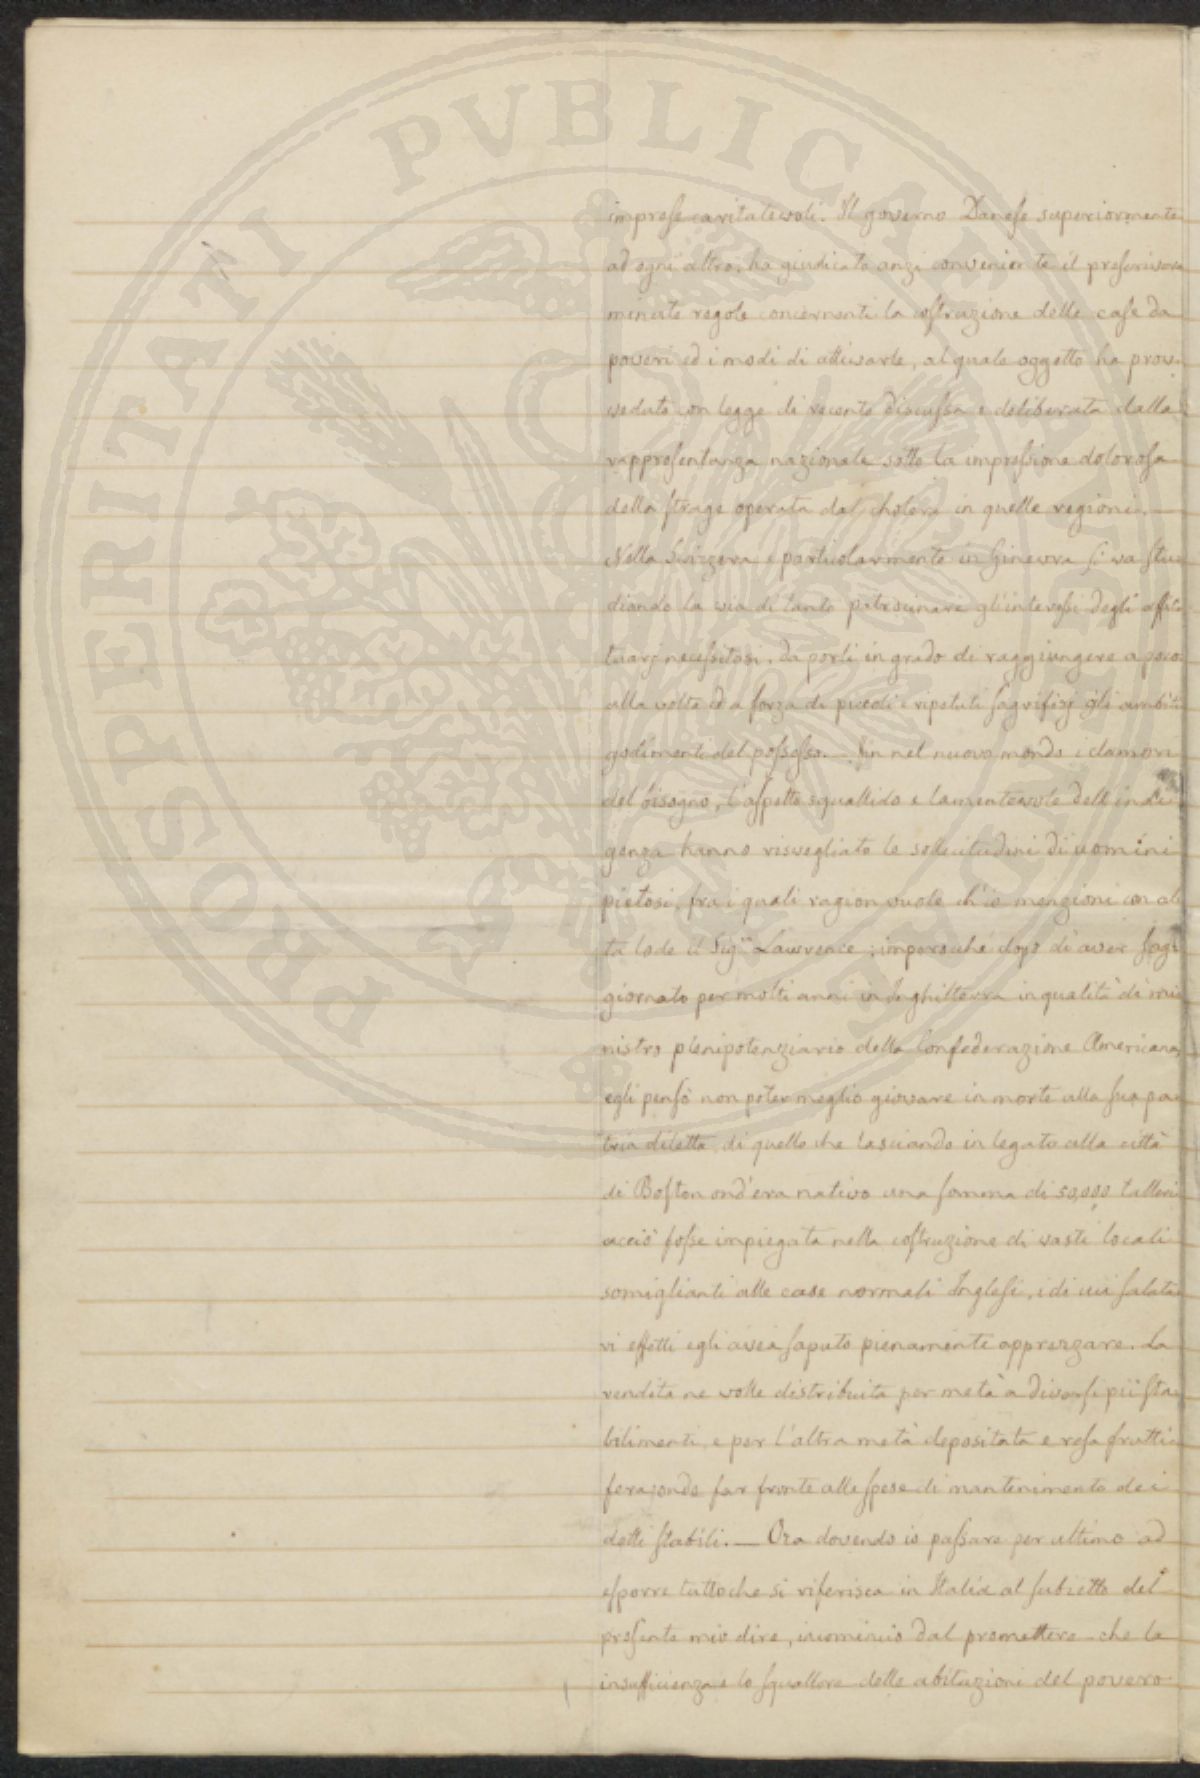 PROSPERITATI PUBLICAE AUGENDAE
imprese caritatevoli. Il governo Danese superiormente
ad ogni altro, ha giudicato anzi conveniente il prescrivere
minute regole concernenti la costruzione delle case da
poveri ed i modi di attivarle, al quale oggetto ha prov-
veduto con legge di recente discussa e deliberata dalla
rappresentanza nazionale sotto la impressione dolorosa
della strage operata dal cholera in quelle regioni. —
Nella Svizzera e particolarmente in Ginevra si va stu-
diando la via di tanto patrocinare gl'interessi degli affit-
tuarj necessitosi, da porli in grado di raggiungere a poco
alla volta ed a forza di piccoli e ripetuti sagrifizj gli ambiti
godimenti del possesso. — Fin nel nuovo mondo i clamori
del bisogno, l'aspetto squallido e lamentevole dell'indi-
genza hanno risvegliato le sollecitudini di uomini
pietosi, fra i quali ragion vuole ch'io menzioni con al-
ta lode il Sig.r Lawrence; imperocché dopo di aver sog-
giornato per molti anni in Inghilterra in qualità di mi-
nistro plenipotenziario della Confederazione Americana,
egli pensò non poter meglio giovare in morte alla sua pa-
tria diletta, di quello che lasciando in legato alla città
di Boston ond'era nativo una somma di 50,000 talleri
acciò fosse impiegata nella costruzione di vasti locali
somiglianti alle case normali Inglesi, i di cui saluta-
vi effetti egli avea saputo pienamente apprezzare. La
rendita ne volle distribuita per metà a diversi pii sta-
bilimenti, e per l'altra metà depositata e resa frutti-
fera, onde far fronte alle spese di mantenimento dei
detti stabili. — Ora dovendo io passare per ultimo ad
esporre tuttoche si riferisca in Italia al subietto del
presente mio dire, incomincio dal premettere che la
insufficienza e lo squallore delle abitazioni del povero